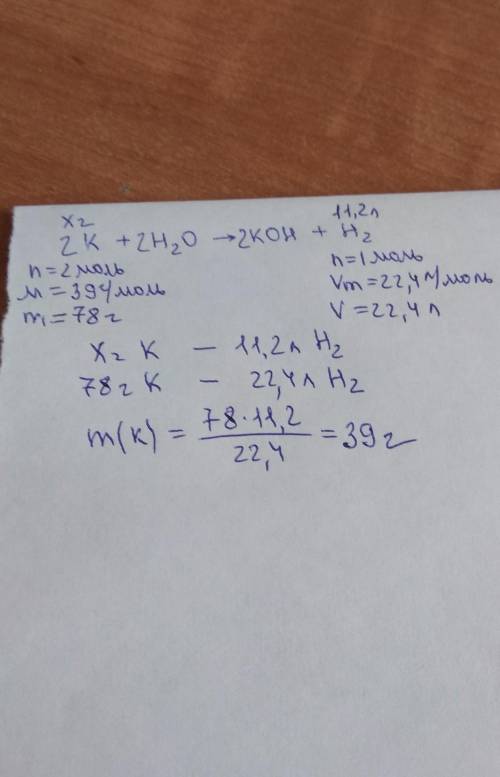 x г 11,2 л
2K + 2H₂O → 2KOH + H₂
n = 2 моль n = 1 моль
M = 39 г/моль Vm = 22,4 л/моль
m = 78 г V = 22,4 л
x г K — 11,2 л H₂
78 г K — 22,4 л H₂
m(K) = 78·11,2 / 22,4 = 39 г